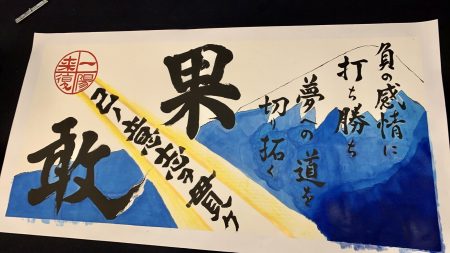 負の感情に
打ち勝ち
夢への道を
切り拓く
果敢
己ノ意志ヲ貫ク
一陽
来復